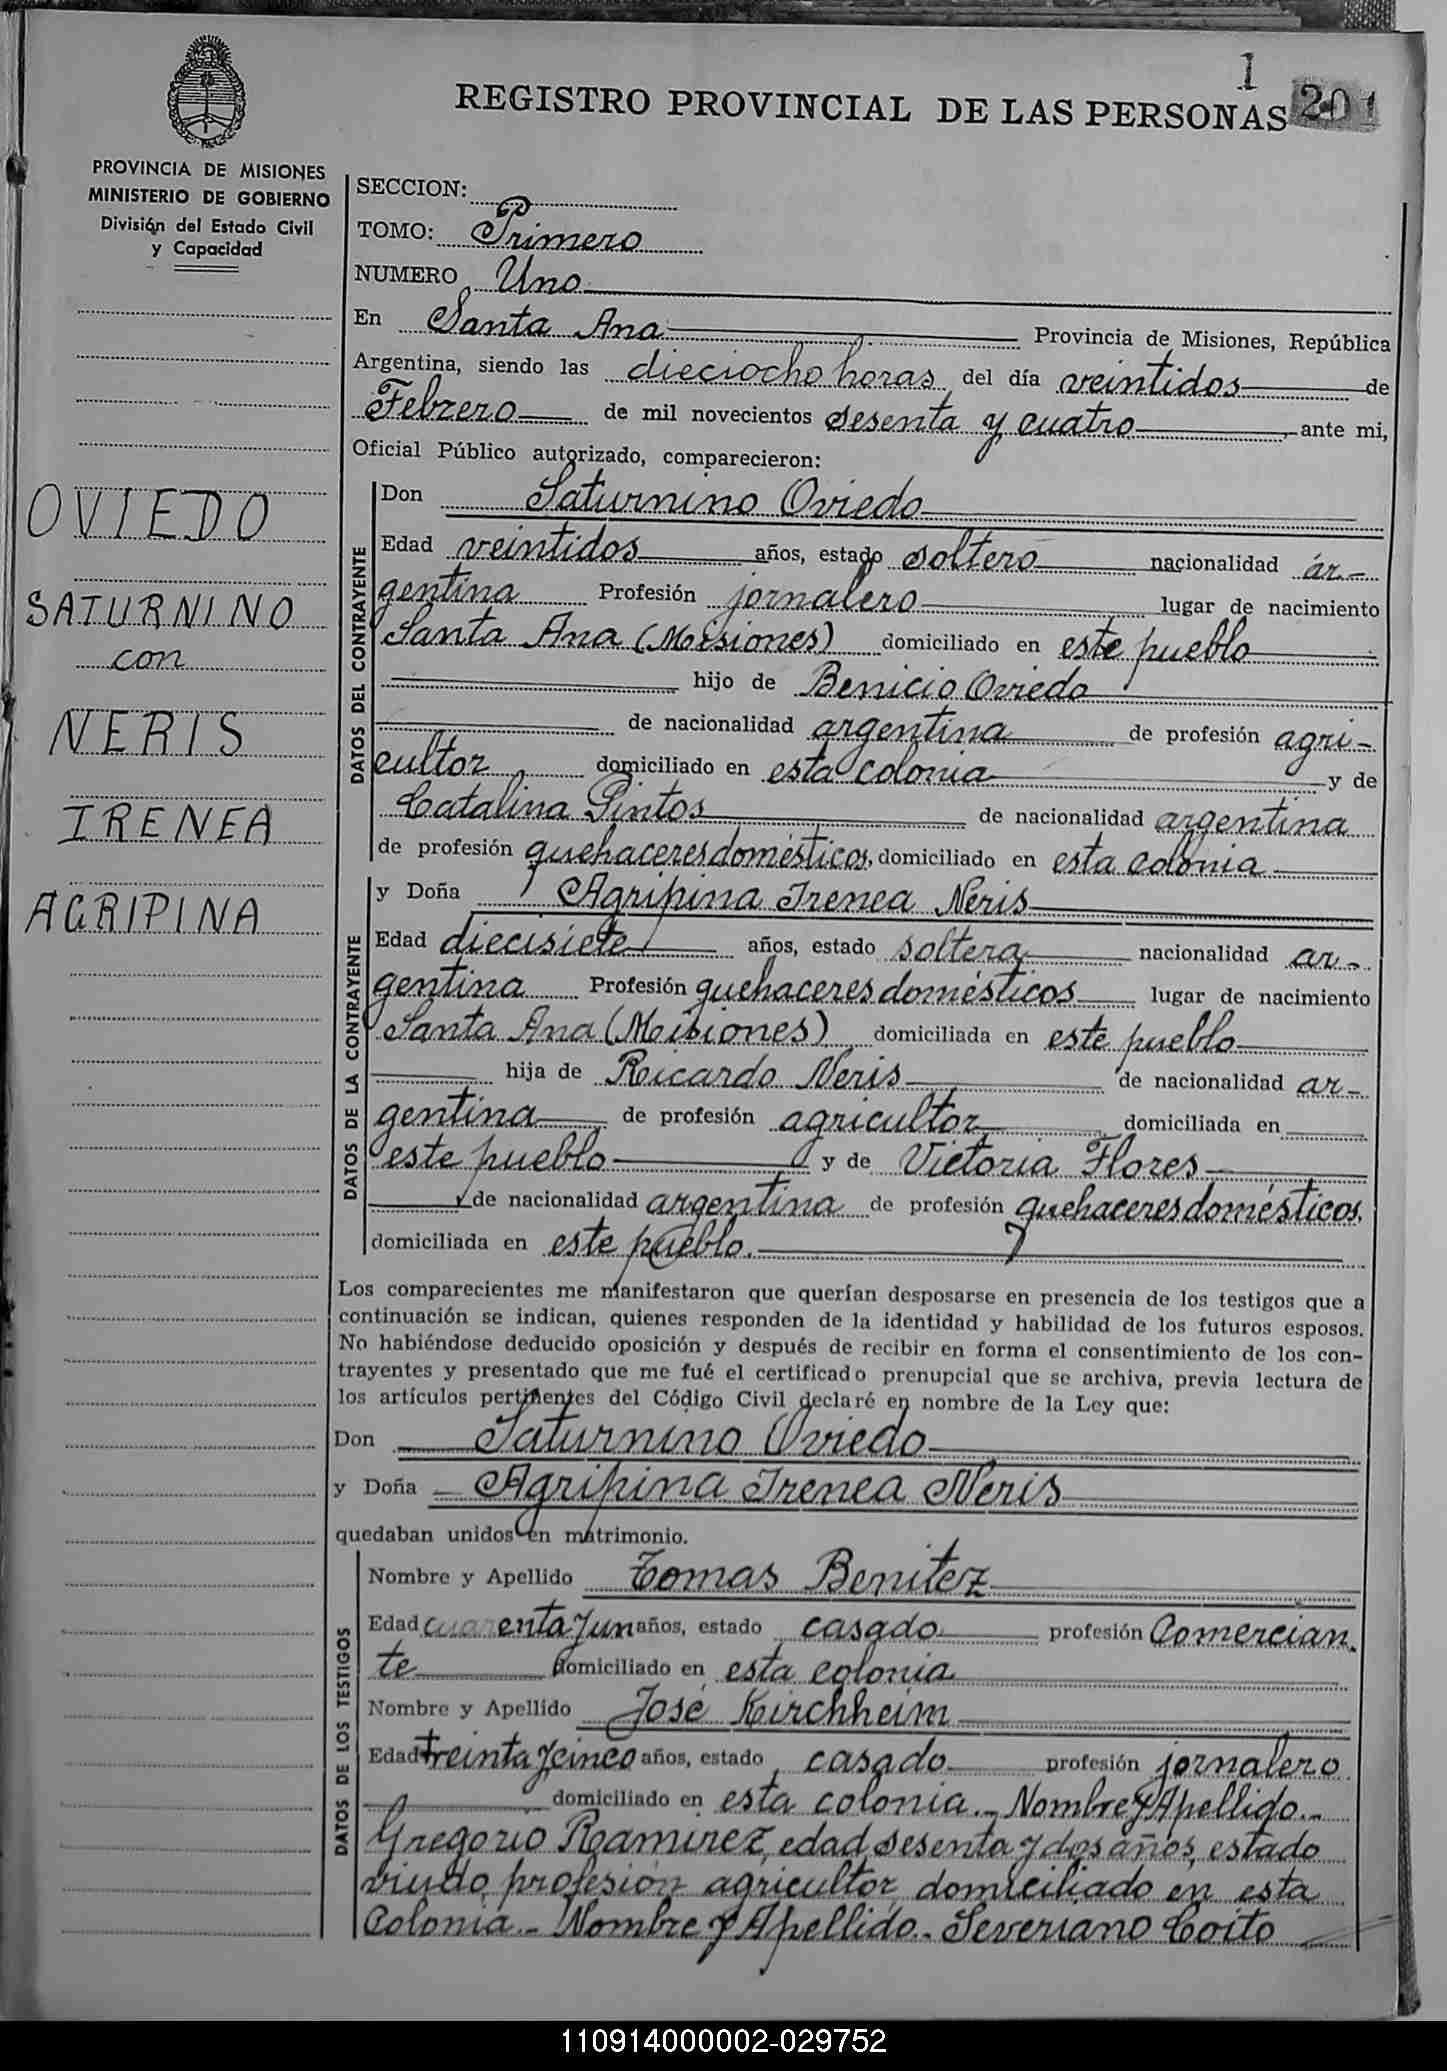 1
201
REGISTRO PROVINCIAL DE LAS PERSONAS
PROVINCIA DE MISIONES
MINISTERIO DE GOBIERNO
División del Estado Civil
y Capacidad
OVIEDO
SATURNINO
con
NERIS
IRENEA
AGRIPINA
SECCION:
TOMO: Primero
NUMERO Uno
En Santa Ana Provincia de Misiones, República
Argentina, siendo las dieciocho horas del día veintidos de
Febrero de mil novecientos sesenta y cuatro, ante mi,
Oficial Público autorizado, comparecieron:
DATOS DEL CONTRAYENTE
Don Saturnino Oviedo
Edad veintidos años, estado soltero nacionalidad ar-
gentina Profesión jornalero lugar de nacimiento
Santa Ana (Misiones) domiciliado en este pueblo
hijo de Benicio Oviedo
de nacionalidad argentina de profesión agri-
cultor domiciliado en esta colonia y de
Catalina Pintos de nacionalidad argentina
de profesión quehaceres domésticos, domiciliado en esta colonia
DATOS DE LA CONTRAYENTE
y Doña Agripina Irenea Neris
Edad diecisiete años, estado soltera nacionalidad ar-
gentina Profesión quehaceres domésticos lugar de nacimiento
Santa Ana (Misiones) domiciliada en este pueblo
hija de Ricardo Neris de nacionalidad ar-
gentina de profesión agricultor domiciliada en
este pueblo y de Victoria Flores
de nacionalidad argentina de profesión quehaceres domésticos,
domiciliada en este pueblo.
Los comparecientes me manifestaron que querían desposarse en presencia de los testigos que a
continuación se indican, quienes responden de la identidad y habilidad de los futuros esposos.
No habiéndose deducido oposición y después de recibir en forma el consentimiento de los con-
trayentes y presentado que me fué el certificado prenupcial que se archiva, previa lectura de
los artículos pertinentes del Código Civil declaré en nombre de la Ley que:
Don Saturnino Oviedo
y Doña Agripina Irenea Neris
quedaban unidos en matrimonio.
DATOS DE LOS TESTIGOS
Nombre y Apellido Tomas Benitez
Edad cuarenta y un años, estado casado profesión Comercian-
te domiciliado en esta colonia
Nombre y Apellido José Kirchheim
Edad treinta y cinco años, estado casado profesión jornalero
domiciliado en esta colonia.- Nombre y Apellido.-
Gregorio Ramirez, edad sesenta y dos años, estado
viudo, profesión agricultor, domiciliado en esta
Colonia.- Nombre y Apellido.- Severiano Coito
110914000002-029752